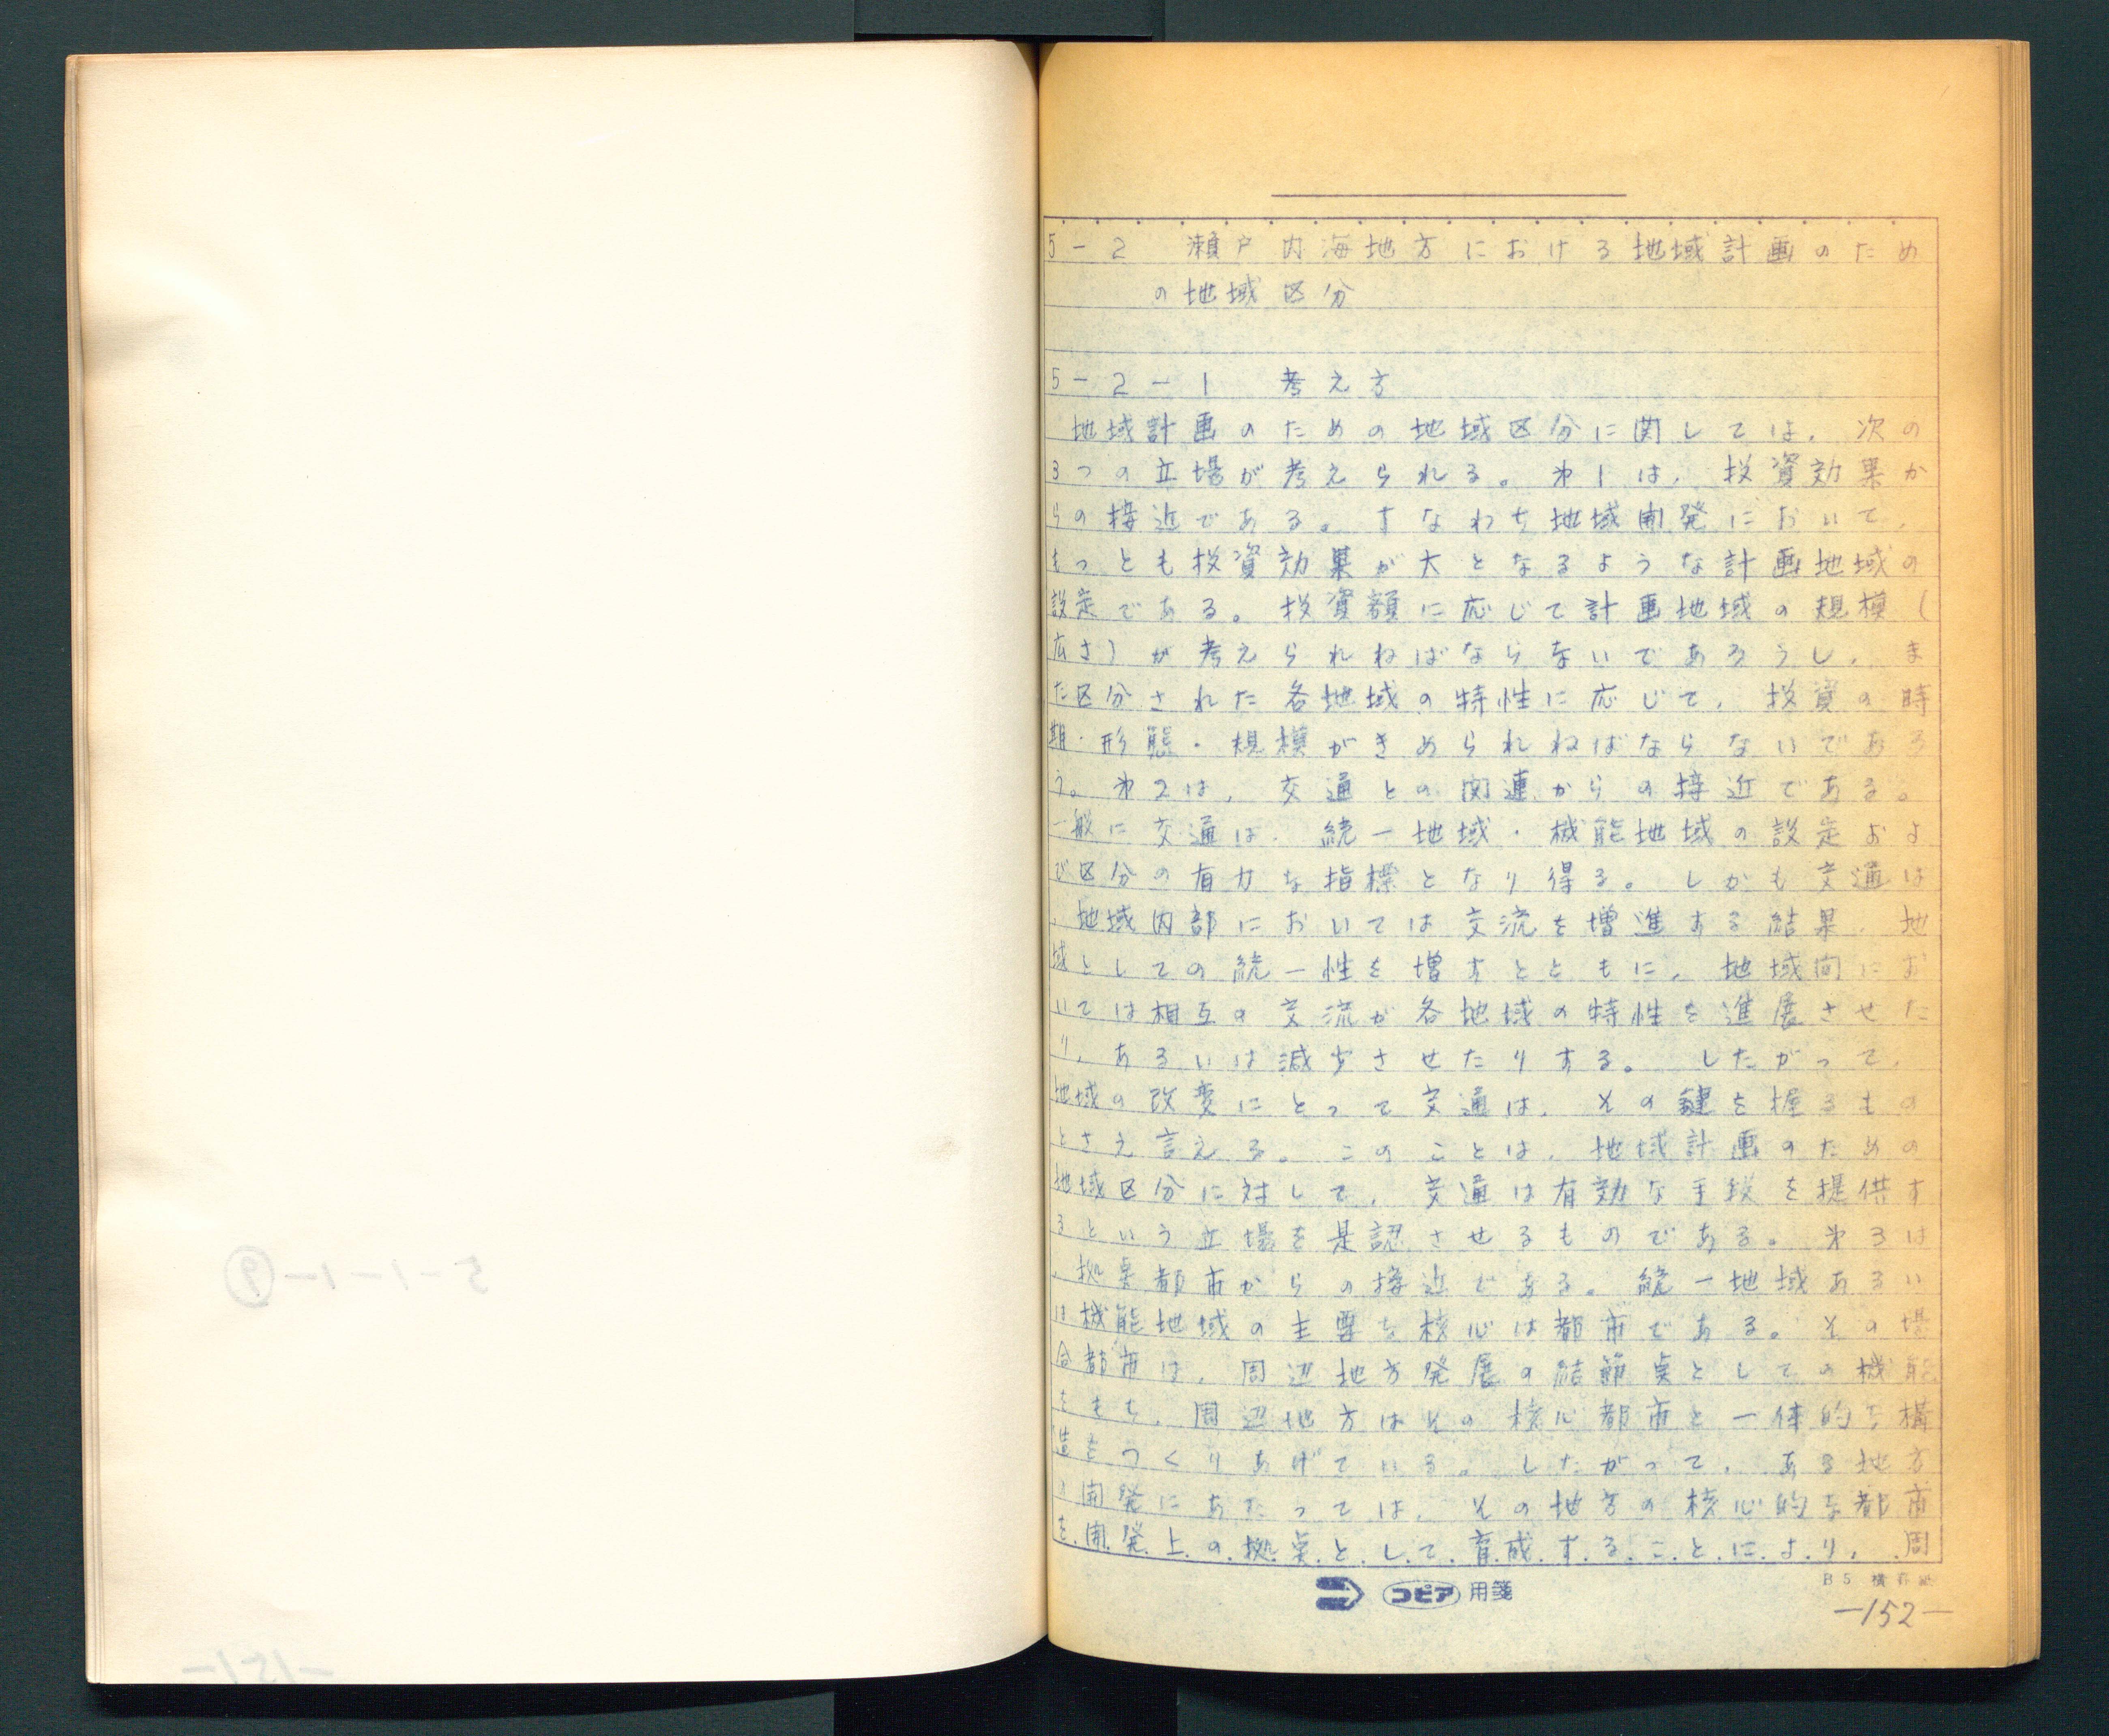 5-2 瀬戸内海地方における地域計画のため
の地域区分
5-2-1 考え方
地域計画のための地域区分に関しては、次の
3つの立場が考えられる。第1は、投資効果か
らの接近である。すなわち地域開発において、
もっとも投資効果が大となるような計画地域の
設定である。投資額に応じて計画地域の規模(
広さ)が考えられねばならないであろうし、ま
た区分された各地域の特性に応じて、投資の時
期・形態・規模がきめられねばならないであろ
う。第2は、交通との関連からの接近である。
一般に交通は、統一地域・機能地域の設定およ
び区分の有力な指標となり得る。しかも交通は
、地域内部においては交流を増進する結果、地
域としての統一性を増すとともに、地域間にお
いては相互の交流が各地域の特性を進展させた
り、あるいは減少させたりする。したがって、
地域の改変にとって交通は、その鍵を握るもの
とさえ言える。このことは、地域計画のための
地域区分に対して、交通は有効な手段を提供す
るという立場を是認させるものである。第3は
、拠点都市からの接近である。統一地域あるい
は機能地域の主要な核心は都市である。その場
合都市は、周辺地方発展の結節点としての機能
をもち、周辺地方はその核心都市と一体的な構
造をつくりあげている。したがって、ある地方
の開発にあたっては、その地方の核心的な都市
を開発上の拠点として育成することにより、周
コピア用箋
B5 横
-152-
5-1-1-⑨
-151-